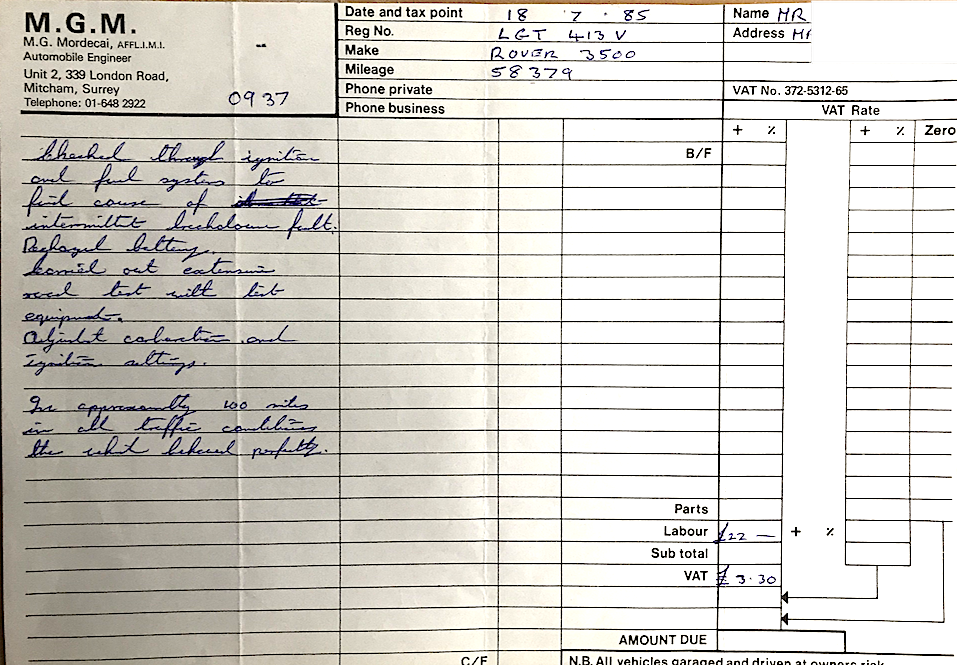 M.G.M.
M.G. Mordecai, AFFL.I.M.I.
Automobile Engineer
Unit 2, 339 London Road,
Mitcham, Surrey
Telephone: 01-648 2922
0937
Date and tax point 18 7 · 85
Reg No. LGT 413 V
Make ROVER 3500
Mileage 58379
Phone private
Phone business
Name MR
Address
VAT No. 372-5312-65
VAT Rate
+ % + % Zero
B/F
Checked through ignition
and fuel system to
find cause of
intermittent breakdown fault.
Recharged battery.
Carried out extensive
road test with test
equipment.
Adjust carburettor and
ignition settings.
In approximatly 100 miles
in all traffic conditions
the vehicle behaved perfectly.
Parts
Labour £22 — + %
Sub total
VAT £ 3·30
AMOUNT DUE
C/F
N.B. All vehicles garaged and driven at owners risk